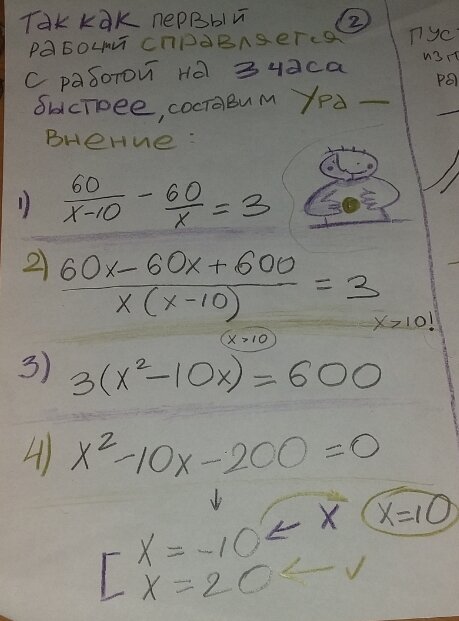 Так как первый
②
рабочий справляется
с работой на 3 часа
быстрее, составим Ура-
внение:
1) 60/(x-10) - 60/x = 3
2) (60x-60x+600)/(x(x-10)) = 3
x>10!
x>10
3) 3(x²-10x)=600
4) x²-10x-200=0
↓
[ x=-10 ← x
x=10
x=20 ← ✓
пус
изг
ра